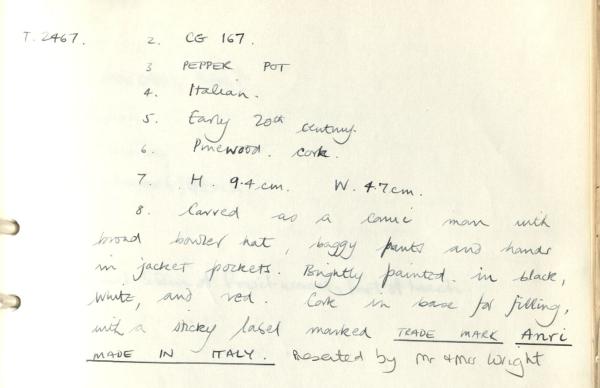 T. 2467. 2. CG 167.
3 PEPPER POT
4. Italian.
5. Early 20th century.
6. Pinewood. cork.
7. H. 9.4cm. W. 4.7cm.
8. Carved as a comic man with
broad bowler hat, baggy pants and hands
in jacket pockets. Brightly painted in black,
white, and red. Cork in base for filling,
with a sticky label marked TRADE MARK Anri
MADE IN ITALY. Presented by Mr & Mrs Wright